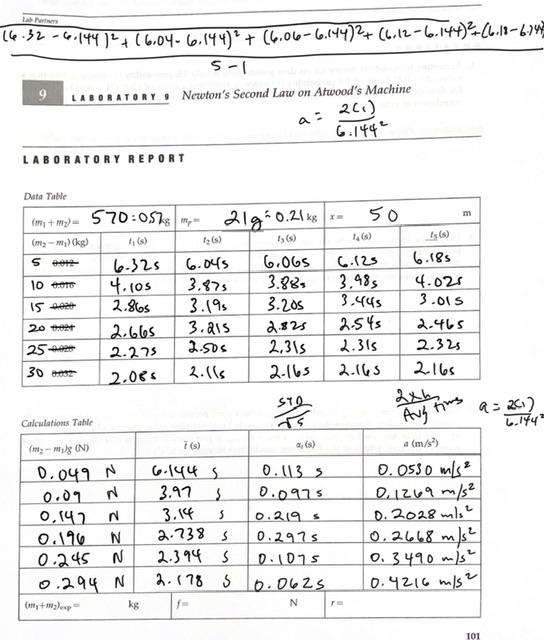 Lab Partners
(6.32 - 6.144)² + (6.04 - 6.144)² + (6.06 - 6.144)² + (6.12 - 6.144)² + (6.18 - 6.144
5 - 1
9 LABORATORY 9 Newton's Second Law on Atwood's Machine
a = 2(1)
6.144²
LABORATORY REPORT
Data Table
(m₁ + m₂) = 570:057kg mₚ = 21g = 0.21 kg x = 50 m
(m₂ − m₁) (kg) t₁ (s) t₂ (s) t₃ (s) t₄ (s) t₅ (s)
5 0.012 6.32s 6.04s 6.06s 6.12s 6.18s
10 0.016 4.10s 3.87s 3.88s 3.98s 4.02s
15 0.020 2.86s 3.19s 3.20s 3.44s 3.01s
20 0.024 2.66s 3.21s 2.82s 2.54s 2.46s
25 0.028 2.27s 2.50s 2.31s 2.31s 2.32s
30 0.032 2.08s 2.11s 2.16s 2.16s 2.16s
STD
√5
2xh
Avg time
a = 2(1)
6.144²
Calculations Table
(m₂ − m₁)g (N) t̄ (s) αₜ (s) a (m/s²)
0.049 N 6.144 s 0.113 s 0.0530 m/s²
0.09 N 3.97 s 0.097s 0.1269 m/s²
0.147 N 3.14 s 0.219 s 0.2028 m/s²
0.196 N 2.738 s 0.297s 0.2668 m/s²
0.245 N 2.394 s 0.107s 0.3490 m/s²
0.294 N 2.178 s 0.062s 0.4216 m/s²
(m₁+m₂)exp = kg f = N r =
101